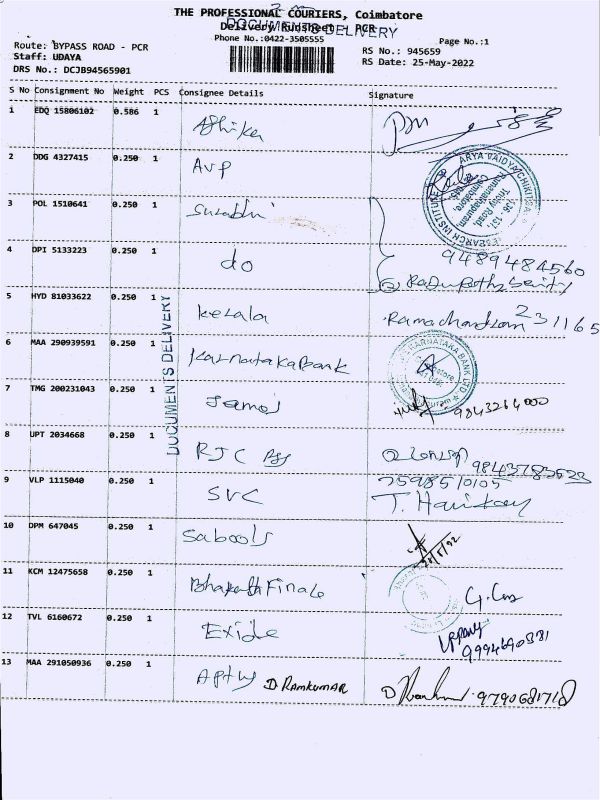 THE PROFESSIONAL COURIERS, Coimbatore
Delivery Runsheet - PCR
DOCUMENTS DELIVERY
Phone No.:0422-3505555
Page No.:1
Route: BYPASS ROAD - PCR
RS No.: 945659
Staff: UDAYA
RS Date: 25-May-2022
DRS No.: DCJB94565901
S No Consignment No Weight PCS Consignee Details Signature
1 EDQ 15806102 0.586 1
2 DDG 4327415 0.250 1 AVP
ARYA VAIDYA CHIKITSA &
RESEARCH INSTITUTE
136, 137,
Trichy Road,
Ramanathapuram
Coimbatore
3 POL 1510641 0.250 1
4 DPI 5133223 0.250 1 do 9489484560
5 HYD 81033622 0.250 1 kerala Ramachandran 231165
DOCUMENTS DELIVERY
6 MAA 290939591 0.250 1 Karnataka Bank
KARNATAKA BANK LTD
7 TMG 200231043 0.250 1 9843264000
8 UPT 2034668 0.250 1 RJC
9 VLP 1115040 0.250 1 SVC 7598510105
10 DPM 647045 0.250 1 Sabools
11 KCM 12475658 0.250 1
12 TVL 6160672 0.250 1 Exide
13 MAA 291050936 0.250 1 D. RAMKUMAR 9790681718